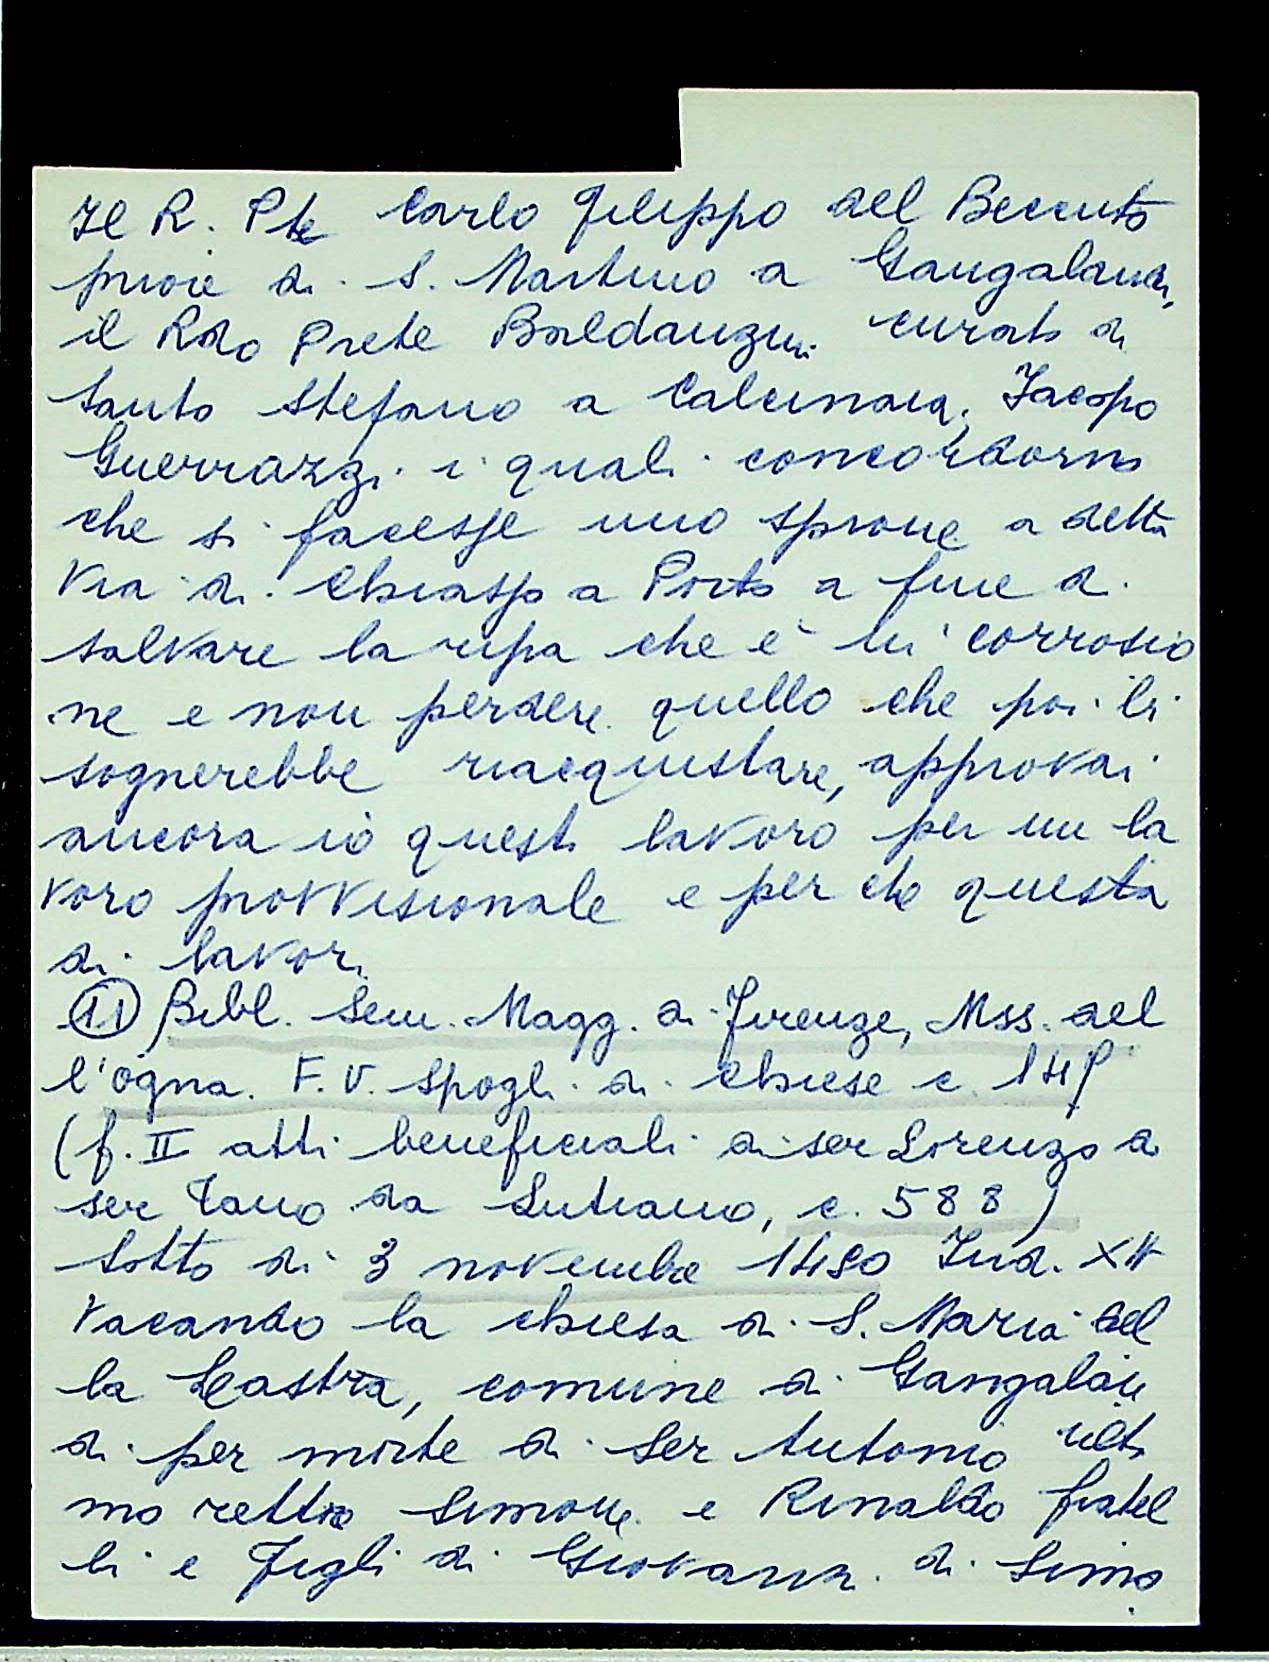 Il R. Pte Carlo Filippo del Beccuto
priore di S. Martino a Gangalandi,
il Rdo Prete Baldanzini curato di
Santo Stefano a Calcinaia, Jacopo
Guerrazzi i quali concordorno
che si facesse uno sprone a detta
Via di Chiasso a Porto a fine di
salvare la ripa che è in corrosio
ne e non perdere quello che poi bi
sognerebbe riacquistare, approvai
ancora io questo lavoro per un la
voro provvisionale e per che questa
di lavori
(11) Bibl. Sem. Magg. di Firenze, Mss. del
l'Ogna. F.V. Spogli di Chiese c. 149
(f. II atti beneficiali di ser Lorenzo di
ser Tano da Lutiano, c. 588)
Sotto di 3 novembre 1480 Ind. XIV
Vacando la chiesa di S. Maria del
la Lastra, comune di Gangalan
di per morte di Ser Antonio ulti
mo rettore Simone e Rinaldo fratel
li e figli di Giovanni di Simo